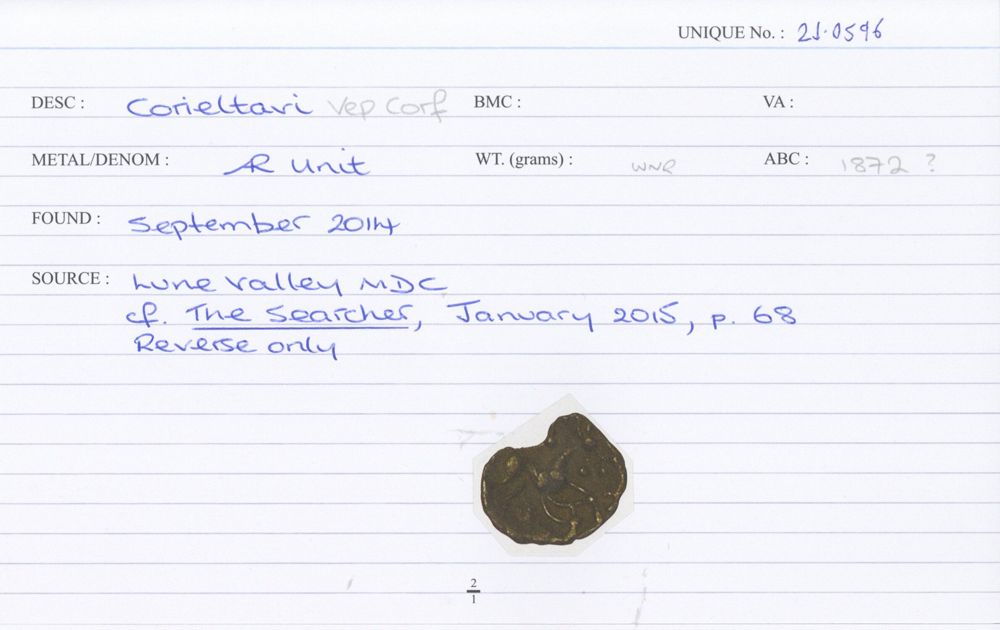 UNIQUE No. : 21.0596
DESC : Corieltavi Vep Corf BMC : VA :
METAL/DENOM : AR Unit WT. (grams) : WNR ABC : 1872 ?
FOUND : September 2014
SOURCE : Lune Valley MDC
cf. The Searcher, January 2015, p. 68
Reverse only
2
1